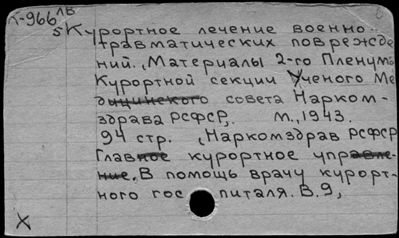 К-966 ЛВ
5 Курортное лечение военно-
травматических поврежде
ний. , Материалы 2-го Пленума
Курортной секции Ученого Ме
дицинского совета Нарком-
здрава РСФСР, м., 1943.
94 стр. (Наркомздрав РСФСР
Главное курортное управле-
ние. В помощь врачу курорт-
ного гос питаля. В. 9,
X